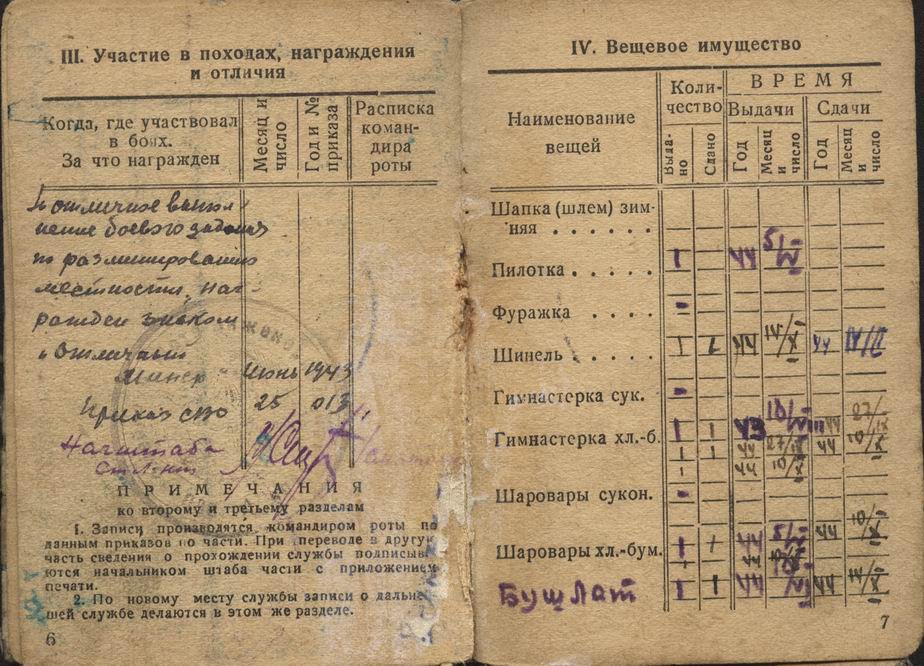 III. Участие в походах, награждения
и отличия
Когда, где участвовал
в боях.
За что награжден
Месяц и
число
Год и №
приказа
Расписка
коман-
дира
роты
отличное выпол
нение боевого задания
по разминированию
местности, наг
ражден знаком
"Отличный
Минер" Июнь 1943
Приказ СВО 25 013
Нач штаба
Ст. л-нт
ПРИМЕЧАНИЯ
ко второму и третьему разделам
1. Записи производятся командиром роты по
данным приказов по части. При переводе в другую
часть сведения о прохождении службы подписыв
ются начальником штаба части с приложением
печати.
2. По новому месту службы записи о дальне
шей службе делаются в этом же разделе.
6
IV. Вещевое имущество
Наименование
вещей
Коли-
чество
ВРЕМЯ
Выдачи
Сдачи
Выда-
но
Сдано
Год
Месяц
и
число
Год
Месяц
и
число
Шапка (шлем) зим-
няя . . . . . .
Пилотка . . . . . 1 44 5/IV
Фуражка . . . . -
Шинель . . . . . 1 1 44 44
Гимнастерка сук. -
Гимнастерка хл.-б. 1 1 43 44
1 1 44 44 10/X
1 44 10/X
Шаровары сукон. -
Шаровары хл.-бум. 1 1 44 44 10/X
44
Бушлат 1 1 44 44
7